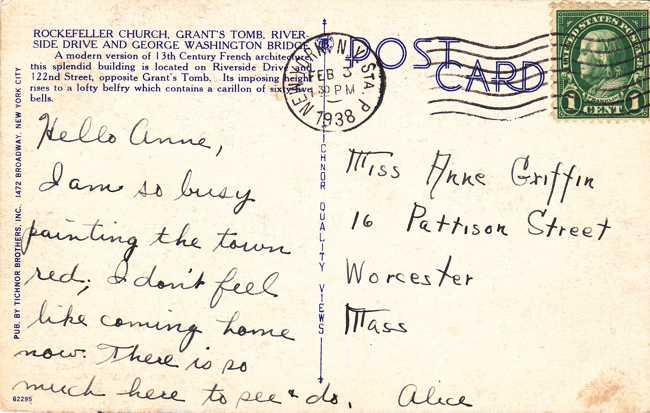 ROCKEFELLER CHURCH, GRANT'S TOMB, RIVER-
SIDE DRIVE AND GEORGE WASHINGTON BRIDGE
A modern version of 13th Century French architecture,
this splendid building is located on Riverside Drive and
122nd Street, opposite Grant's Tomb. Its imposing height
rises to a lofty belfry which contains a carillon of sixty-five
bells.
Hello Anne,
I am so busy
painting the town
red; I don't feel
like coming home
now. There is so
much here to see & do.
Alice
PUB. BY TICHNOR BROTHERS, INC. 1472 BROADWAY, NEW YORK CITY
62295
TICHNOR QUALITY VIEWS
POST
CARD
NEW YORK, N.Y.
STA. P
FEB 3
1 30 PM
1938
UNITED STATES POSTAGE
FRANKLIN
1 CENT 1
Miss Anne Griffin
16 Pattison Street
Worcester
Mass